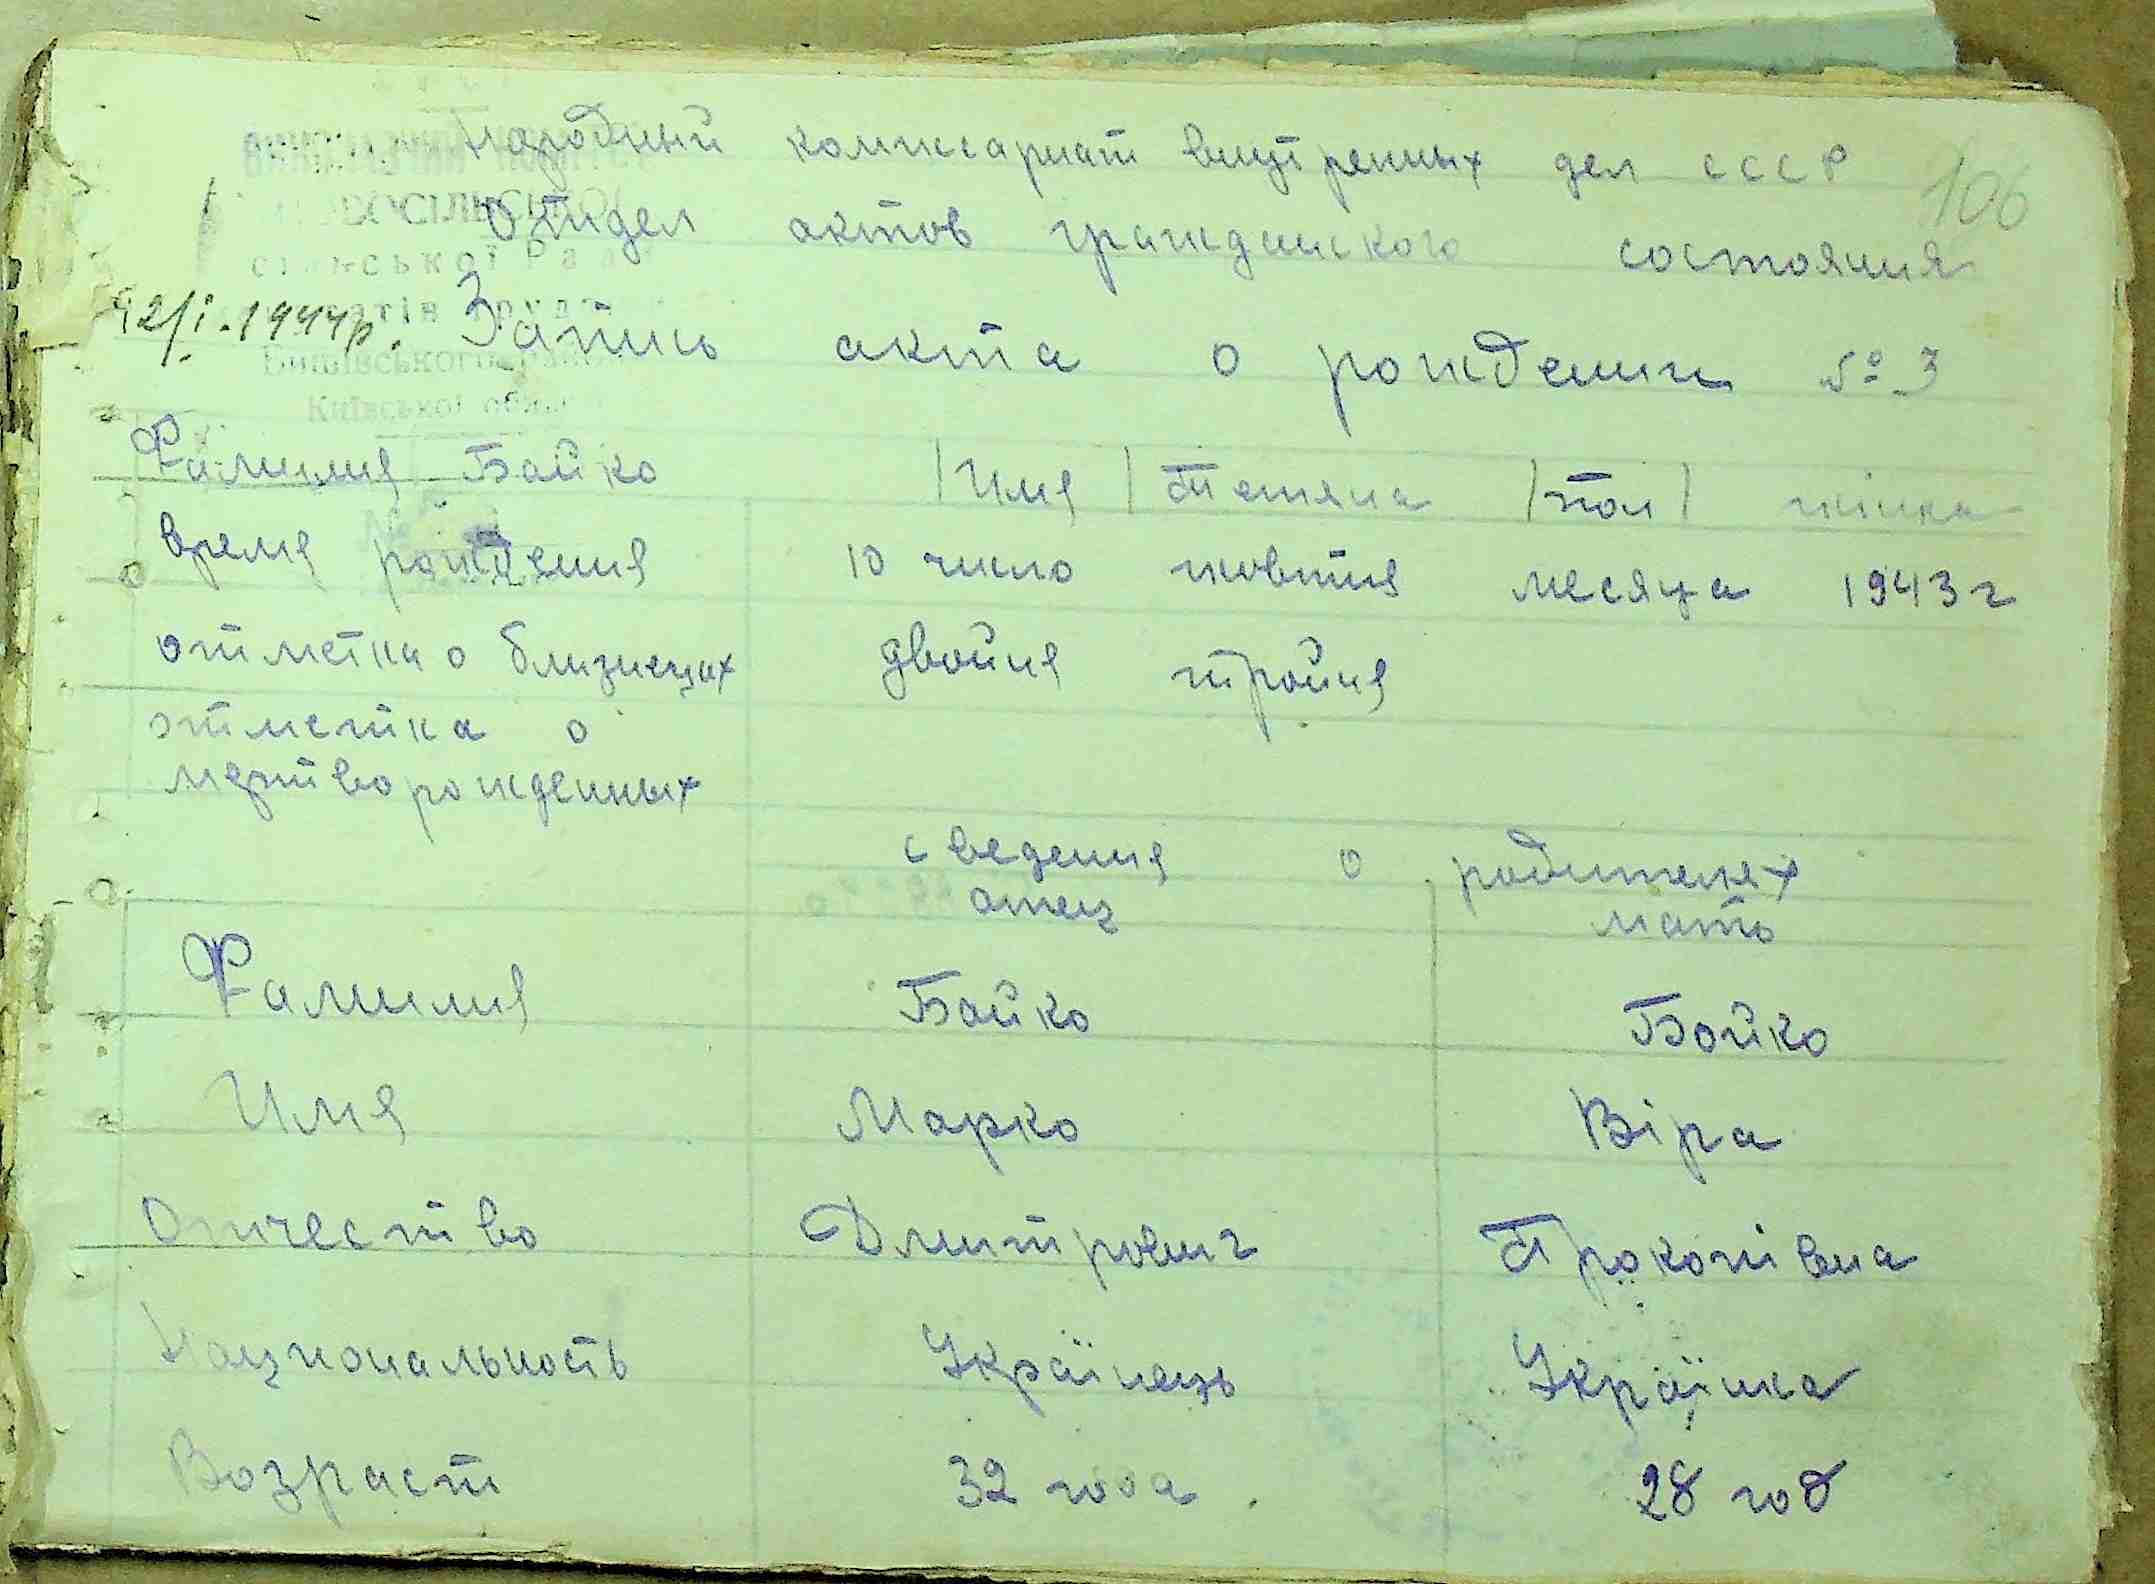 Народный комиссариат внутренных дел СССР
106
Отдел актов гражданского состояния
ОВОСІЛЬСЬКОЇ
сільської Ра
12/I.1944р. Запись акта о рождении № 3
Київської обл
Фамилия Бойко |Имя| Тетяна |пол| жінка
время рождения 10 число жовтня месяца 1943 г
отметка о близнецах двойня тройня
отметка о
мертворожденных
сведения о родителях
отец мать
Фамилия Бойко Бойко
Имя Марко Віра
Отчество Дмитрович Прокопівна
Национальность Українець Українка
Возраст 32 года 28 год